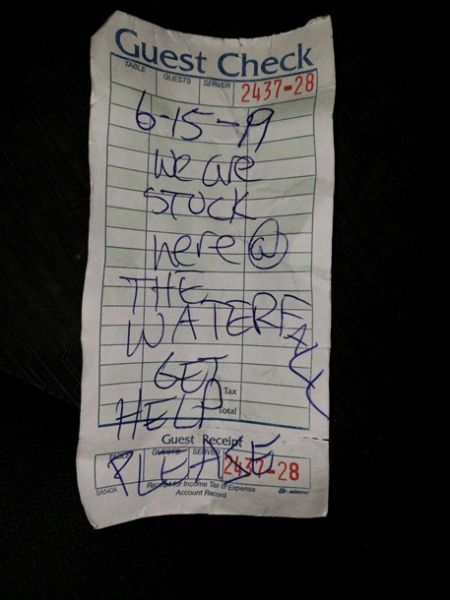 Guest Check
TABLE GUESTS SERVER
2437-28
6-15-19
we are
STUCK
here @
THE
WATERFALL
GET
Tax
HELP
Total
Guest Receipt
GUESTS SERVER
PLEASE
2437-28
Receipt for Income Tax or Expense
SA540A
Account Record
adams